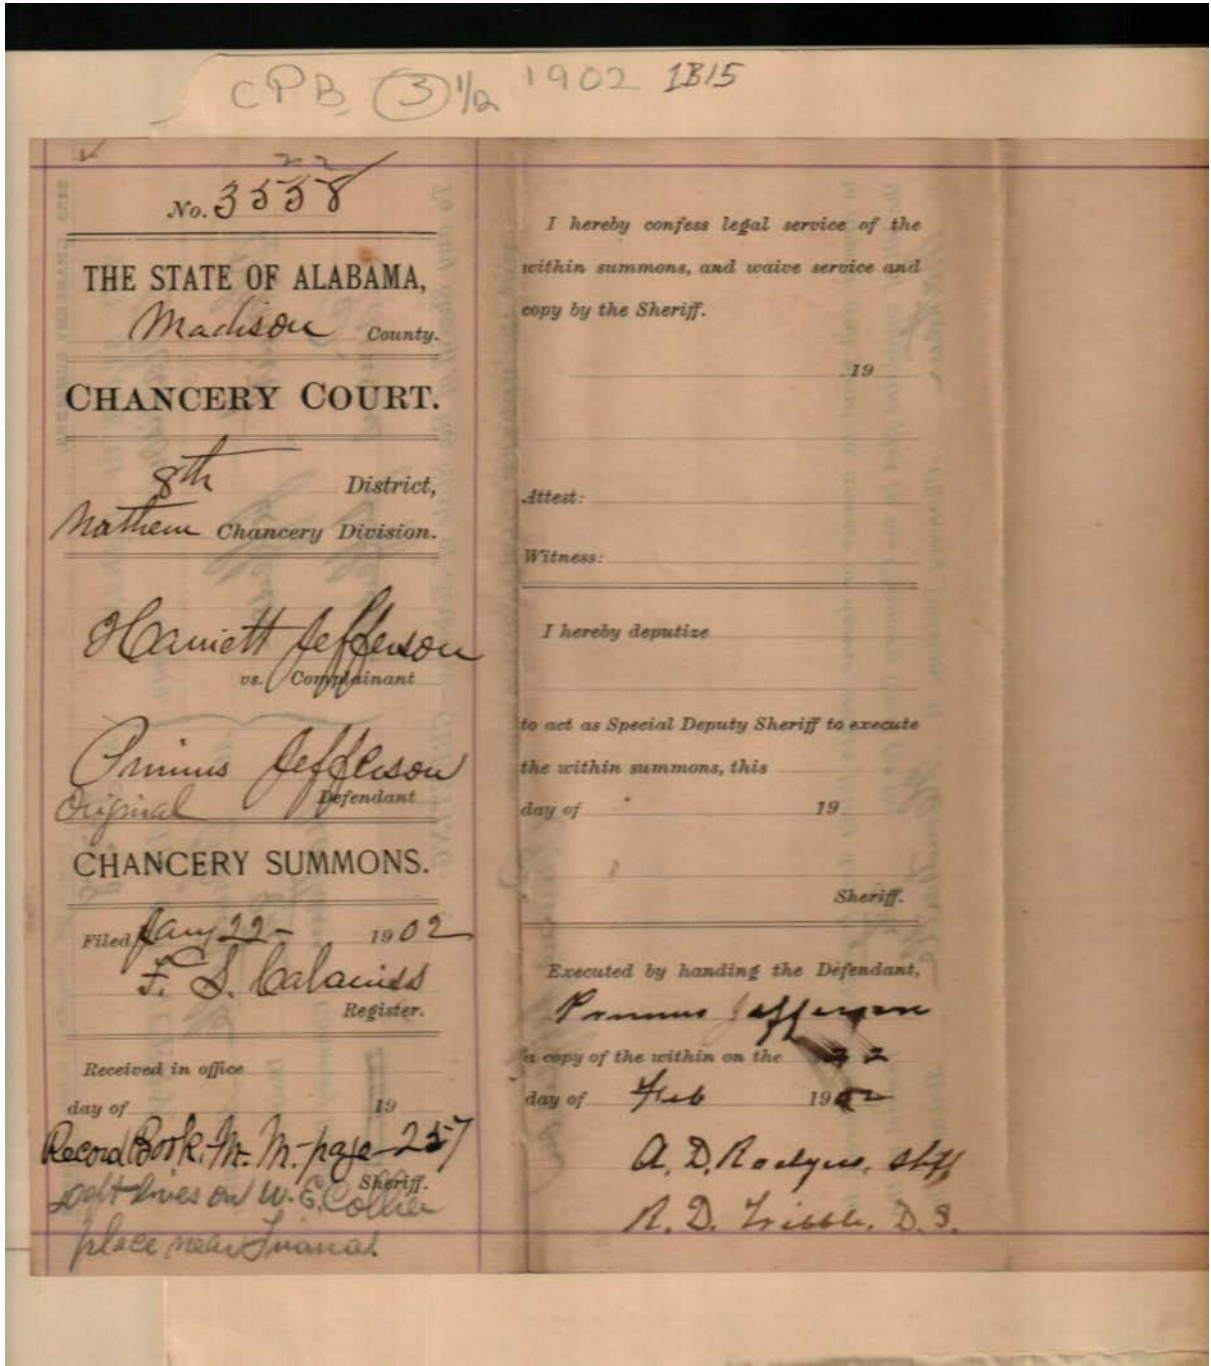 CPB (3) 1/2 1902 1B15
22
No. 3538
THE STATE OF ALABAMA,
Madison County.
CHANCERY COURT.
8th District,
Northern Chancery Division.
Harriett Jefferson
vs. Complainant
Primus Jefferson
Original Defendant
CHANCERY SUMMONS.
Filed Jany 22- 1902
F. S.
Register.
Received in office
day of 19
Record Book. M. M. page 257
Sheriff.
Deft lives on W. E. Collier
place near Triana.
I hereby confess legal service of the
within summons, and waive service and
copy by the Sheriff.
19
Attest:
Witness:
I hereby deputize
to act as Special Deputy Sheriff to execute
the within summons, this
day of 19
Sheriff.
Executed by handing the Defendant,
Primus Jefferson
a copy of the within on the 22
day of Feb 1902
A. D. Rodgers, Shff
R. D. Tribble, D. S.